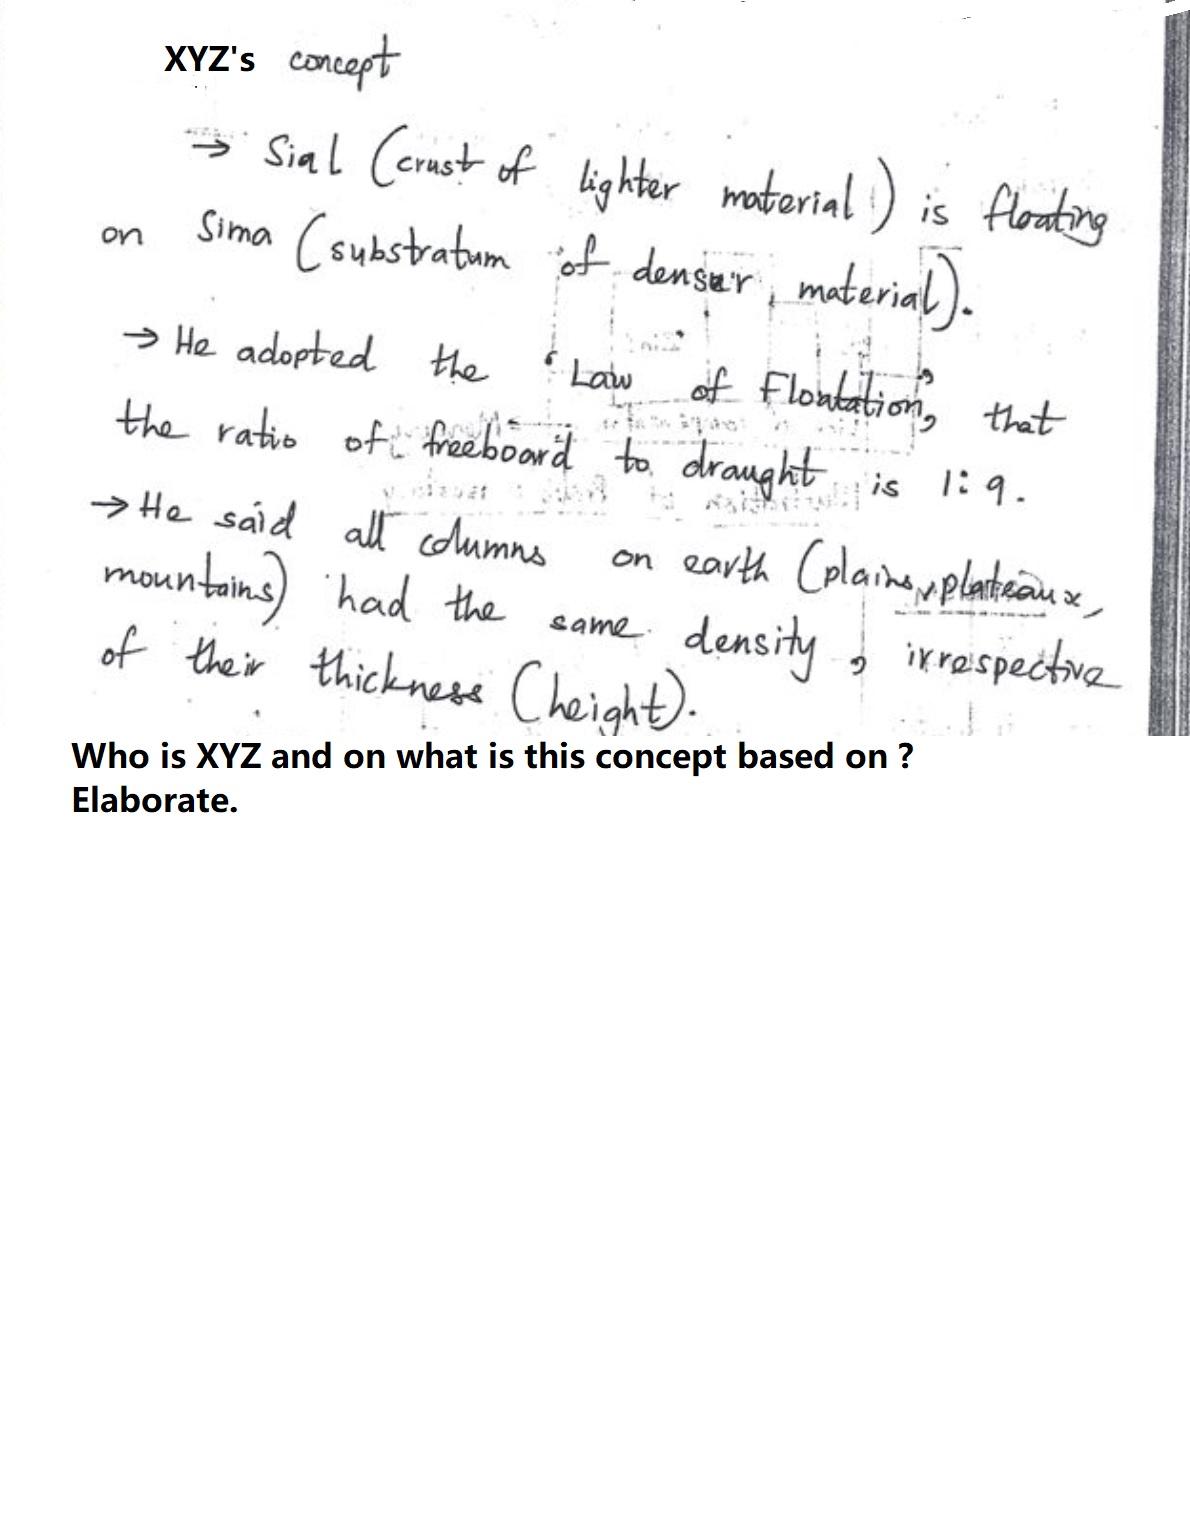 XYZ's concept
→ Sial (crust of lighter material) is floating
on Sima (substratum of denser material).
→ He adopted the 'Law of Floatation', that
the ratio of freeboard to draught is 1:9.
→ He said all columns on earth (plains, plateaux,
mountains) had the same density, irrespective
of their thickness (height).
Who is XYZ and on what is this concept based on ?
Elaborate.